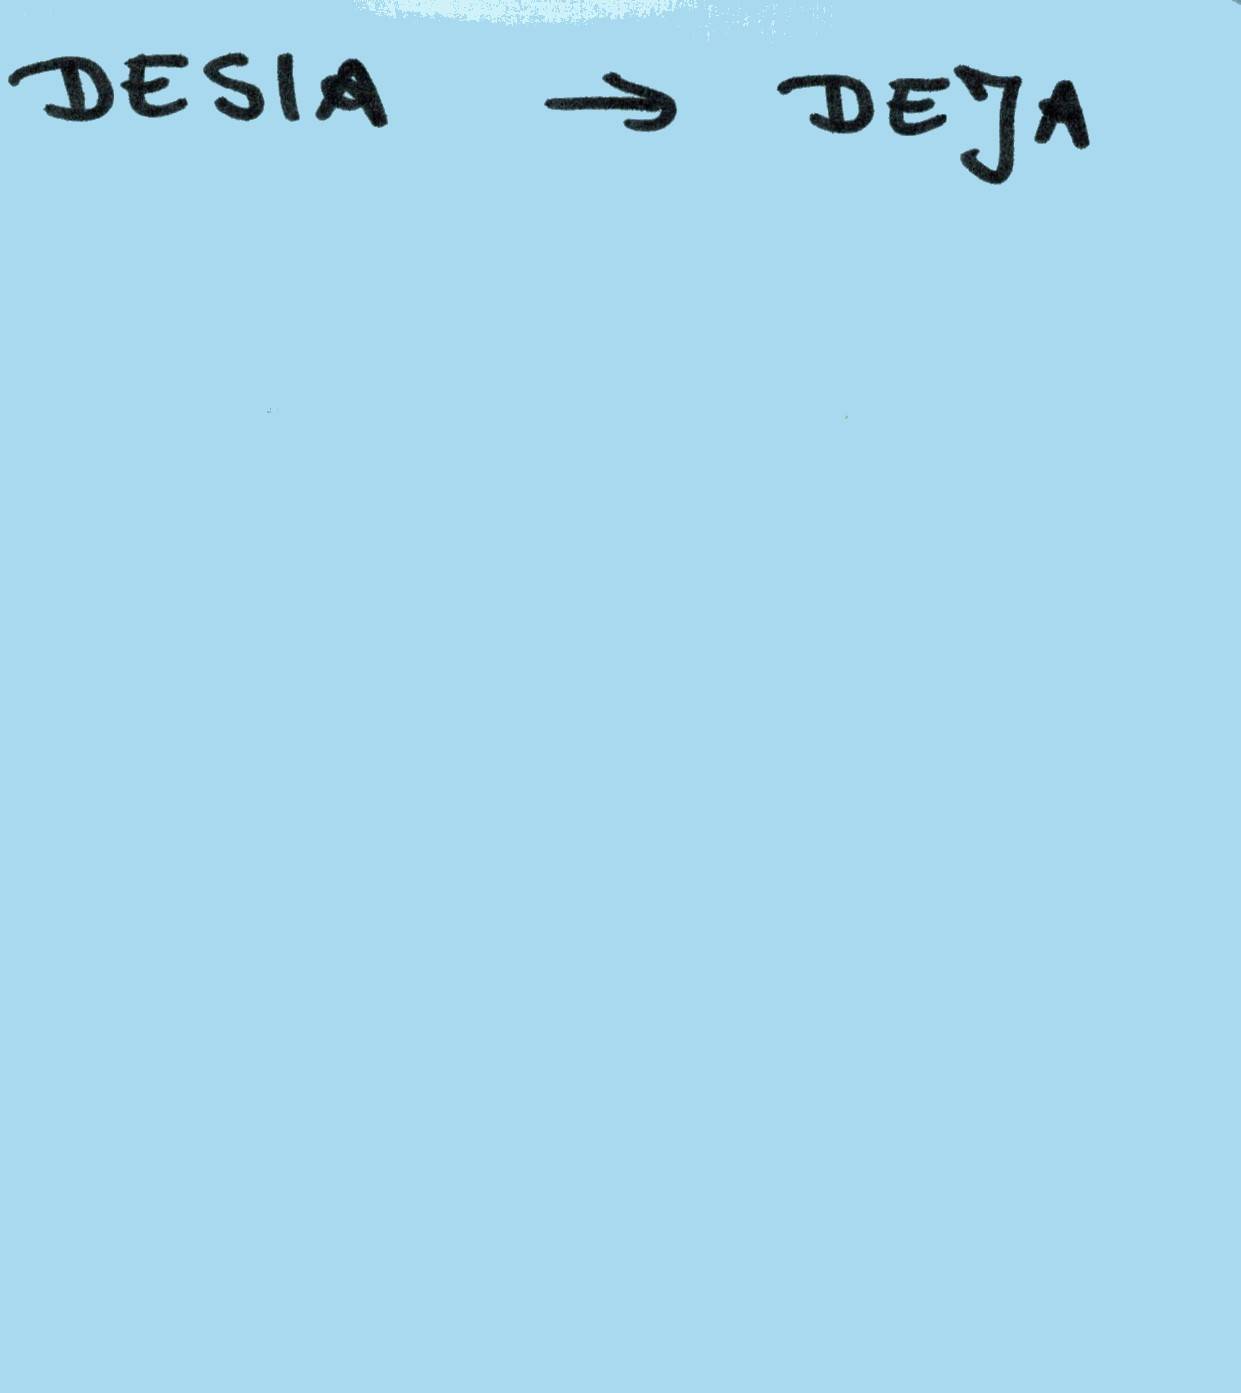 DESIA → DEJA